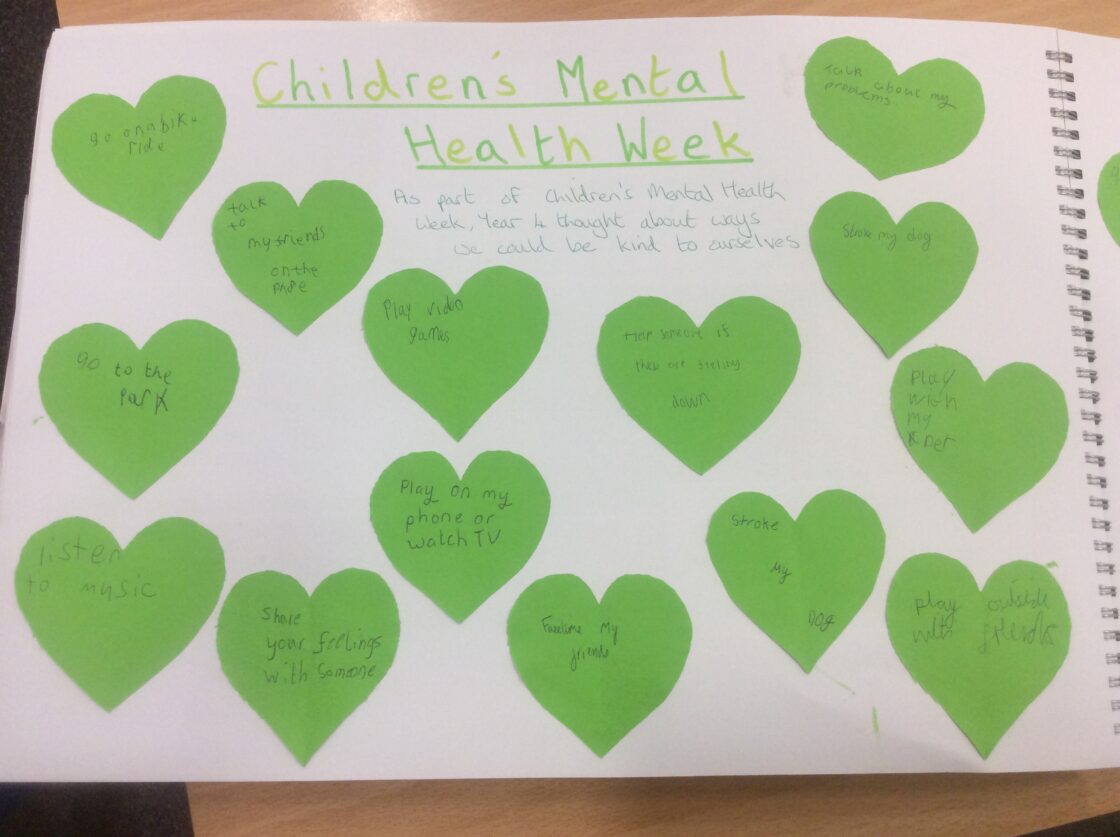 Children's Mental
Health Week
As part of Children's Mental Health
Week, Year 4 thought about ways
we could be kind to ourselves
go on a bike
ride
talk
to
my friends
on the
phone
Play video
games
Talk about my
problems.
Stroke my dog
Help someone if
they are feeling
down
go to the
park
Play
with
my
Play on my
phone or
watch TV
Stroke
My
Dog
listen
to music
Share
your feelings
with someone
Facetime My
friends
play outside
with friends